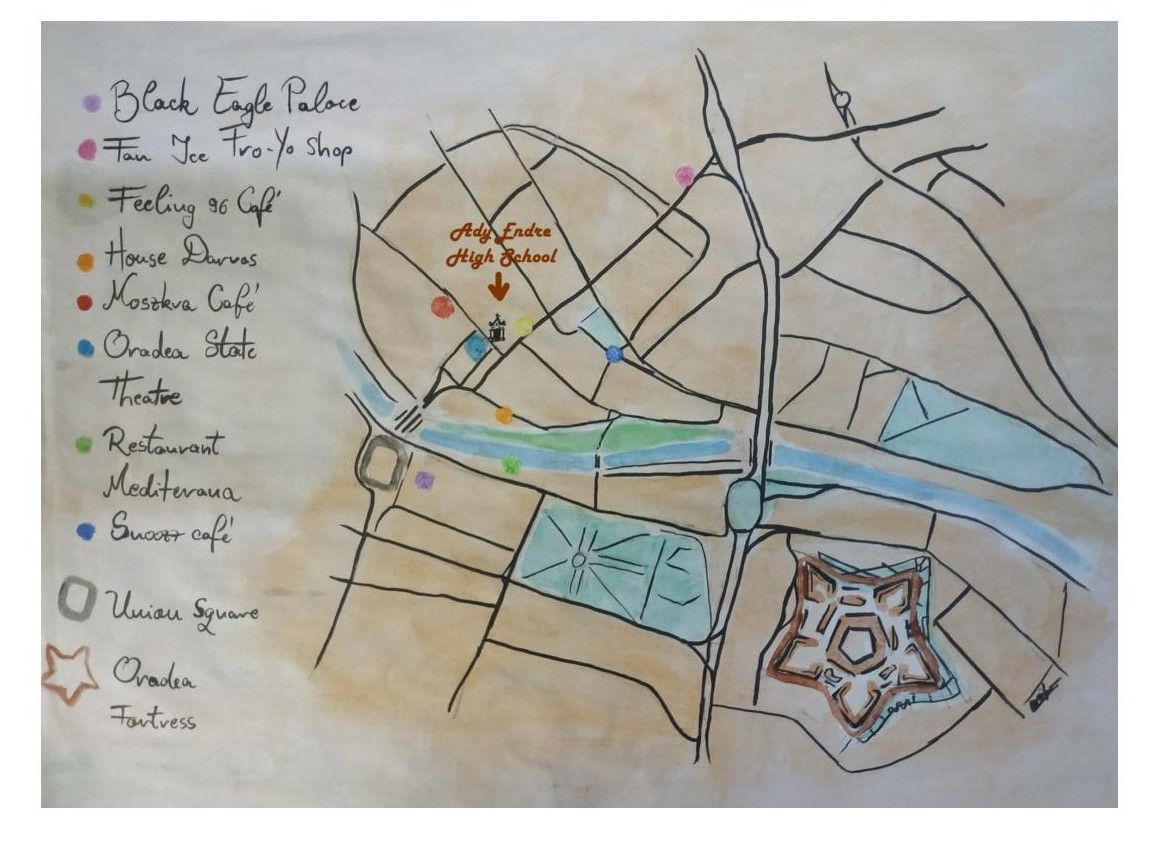 Black Eagle Palace
Fan Ice Fro-Yo Shop
Feeling 96 Café
House Darvas
Moszkva Café
Oradea State
Theatre
Restaurant
Mediterana
Snoozz café
Union Square
Oradea
Fortress
Ady Endre
High School